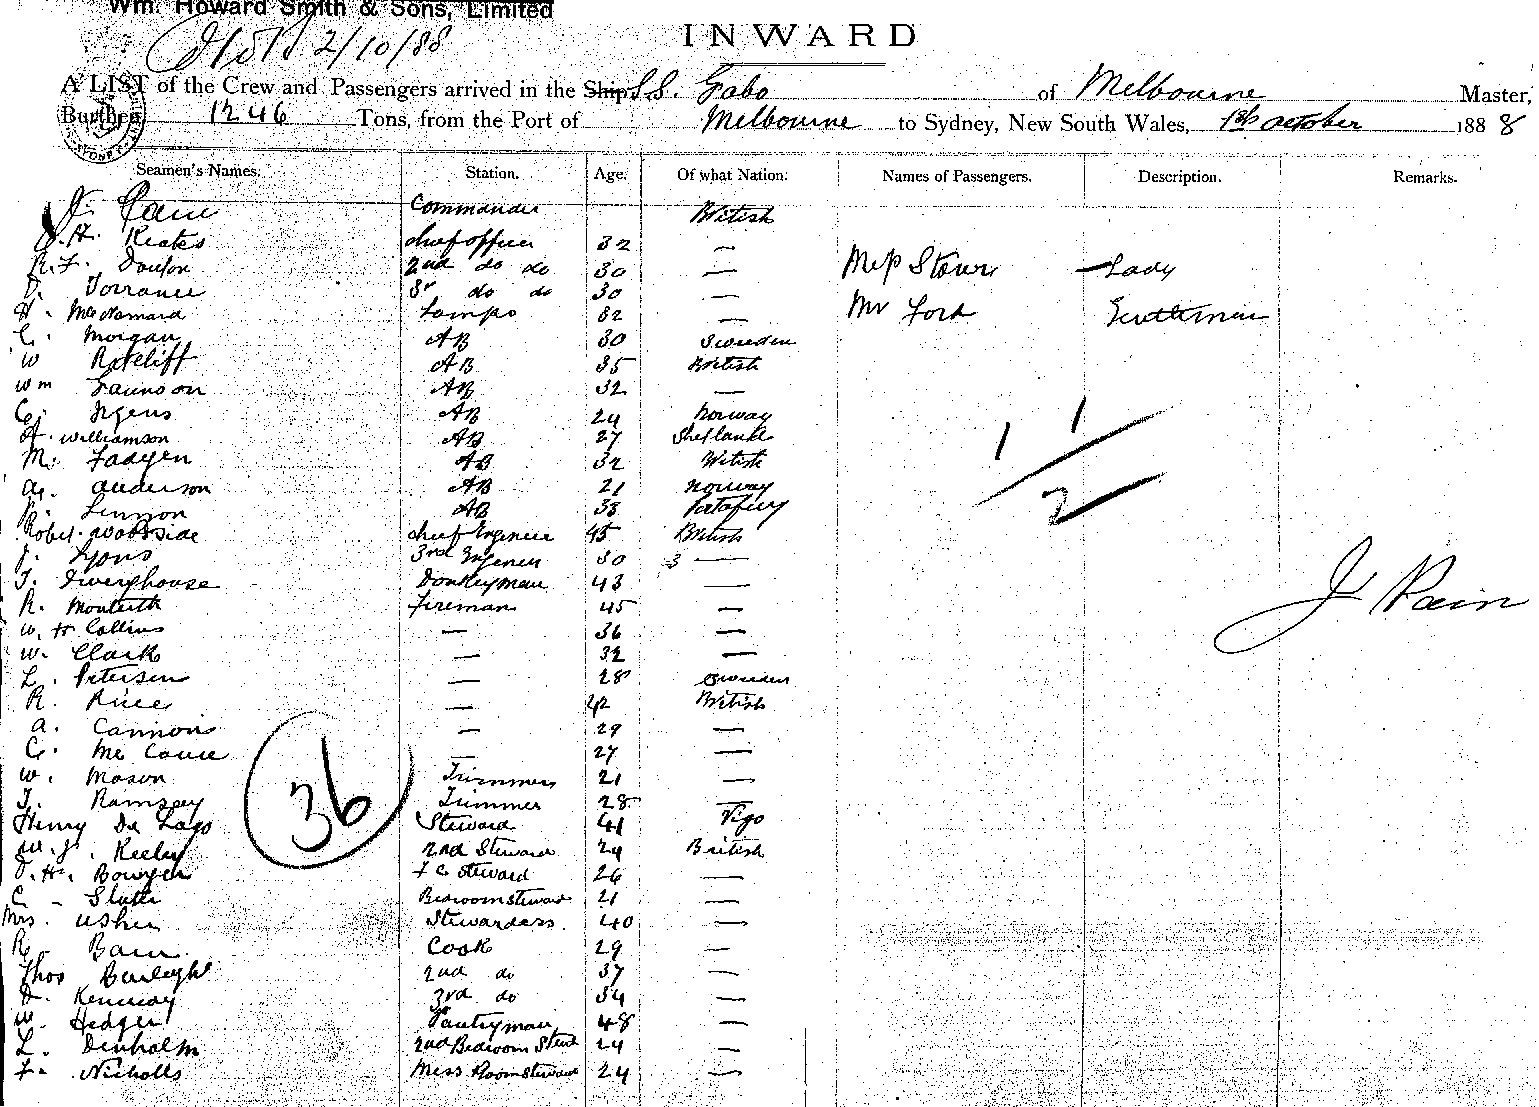 Wm. Howard Smith & Sons, Limited
2/10/88
INWARD
A LIST of the Crew and Passengers arrived in the Ship S.S. Gabo of Melbourne Master,
Burthen 1246 Tons, from the Port of Melbourne to Sydney, New South Wales, 1st October 1888
Seamen's Names. Station. Age. Of what Nation. Names of Passengers. Description. Remarks.
J. Pain Commander British
J. H. Keates chief officer 32 —
R. F. 2nd do do 30 — Stowe Lady
D. Torrance 3r do do 30 —
H. McNamara Lamps 32 — Mr Ford Gentleman
C. Morgan AB 30 Sweden
W Ratcliff AB 35 British
Wm AB 32 —
C. AB 24 Norway
A. Williamson AB 27 Shetland
M. Fadyen AB 32 British
A. Anderson AB 21 Norway
P. Lennon AB 38
Robert Woodside chief Engineer 45 British
J. Lyons 3rd Engineer 30 3 —
T. Donkeyman 43 —
R. Monteith Fireman 45 —
W. H Collins — 36 —
W. Clark — 32 —
L. Petersen — 28 Sweden
R. Rice — 42 British
A. Cannons — 29 —
C. Mc — 27 —
W. Mason Trimmers 21 —
T. Ramsey Trimmer 28 —
Henry De Lago Steward 41 Vigo
W. J. Keeley 2nd Steward 24 British
J. H. Bowyer F C Steward 26 —
C — Slater Bedroom steward 21 —
Mrs. Usher Stewardess 40 —
R. Bain Cook 29 —
Thos Burleigh 2nd do 37 —
D. Kennedy 3rd do 34 —
W. Hedger Pantryman 48 —
L. Denholm 2nd Bedroom Stewd 24 —
F. Nicholls Mess Room steward 24 —
1 1
2
J Pain
36